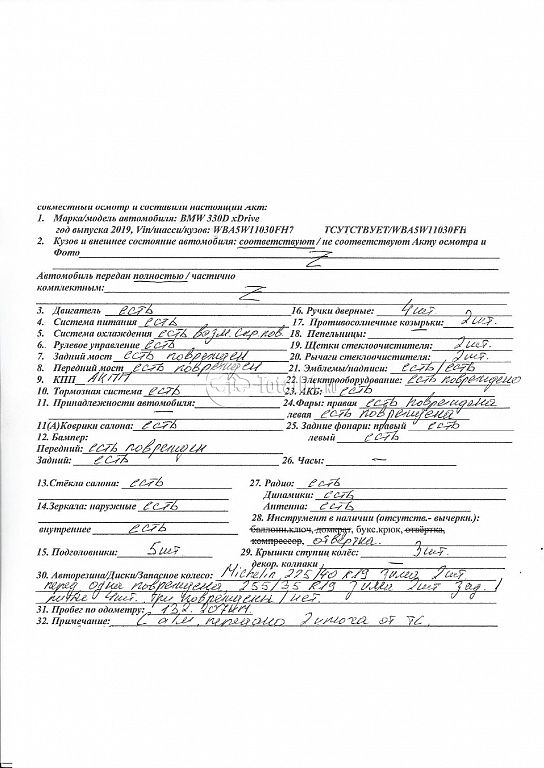 совместный осмотр и составили настоящий Акт:
1. Марка/модель автомобиля: BMW 330D xDrive
год выпуска 2019, Vin/шасси/кузов: WBA5W11030FH7 ТСУТСТВУЕТ/WBA5W11030FH
2. Кузов и внешнее состояние автомобиля: соответствуют / не соответствуют Акту осмотра и
Фото Z
Автомобиль передан полностью / частично
комплектным: Z
3. Двигатель есть 16. Ручки дверные: 4шт.
4. Система питания есть 17. Противосолнечные козырьки: 2шт.
5. Система охлаждения есть возм. скр. пов. 18. Пепельницы:
6. Рулевое управление есть 19. Щетки стеклоочистителя: 2шт.
7. Задний мост есть поврежден 20. Рычаги стеклоочистителя: 2шт.
8. Передний мост есть поврежден 21. Эмблемы/надписи: есть/есть
9. КПП АКПП 22. Электрооборудование: есть повреждено
10. Тормозная система есть 23. АКБ: есть
11. Принадлежности автомобиля: 24.Фары: правая есть повреждена
— левая есть повреждена
11(А)Коврики салона: есть 25. Задние фонари: правый есть
12. Бампер: левый есть
Передний: есть поврежден
Задний: есть 26. Часы: —
13.Стёкла салона: есть 27. Радио: есть
Динамики: есть
14.Зеркала: наружные есть Антенна: есть
28. Инструмент в наличии (отсутств.- вычеркн.):
внутреннее есть баллонн.ключ, домкрат, букс.крюк, отвёртка,
компрессор, отвертка.
15. Подголовники: 5шт 29. Крышки ступиц колёс: 3шт.
декор. колпаки —
30. Авторезина/Диски/Запасное колесо: Michelin 225/40 R19 зима 2шт
перед одна повреждена 255/35 R19 зима 2шт зад. /
литые 4шт. три повреждены / нет.
31. Пробег по одометру: 132.207км.
32. Примечание: С а/м передано 2 ключа от ТС.